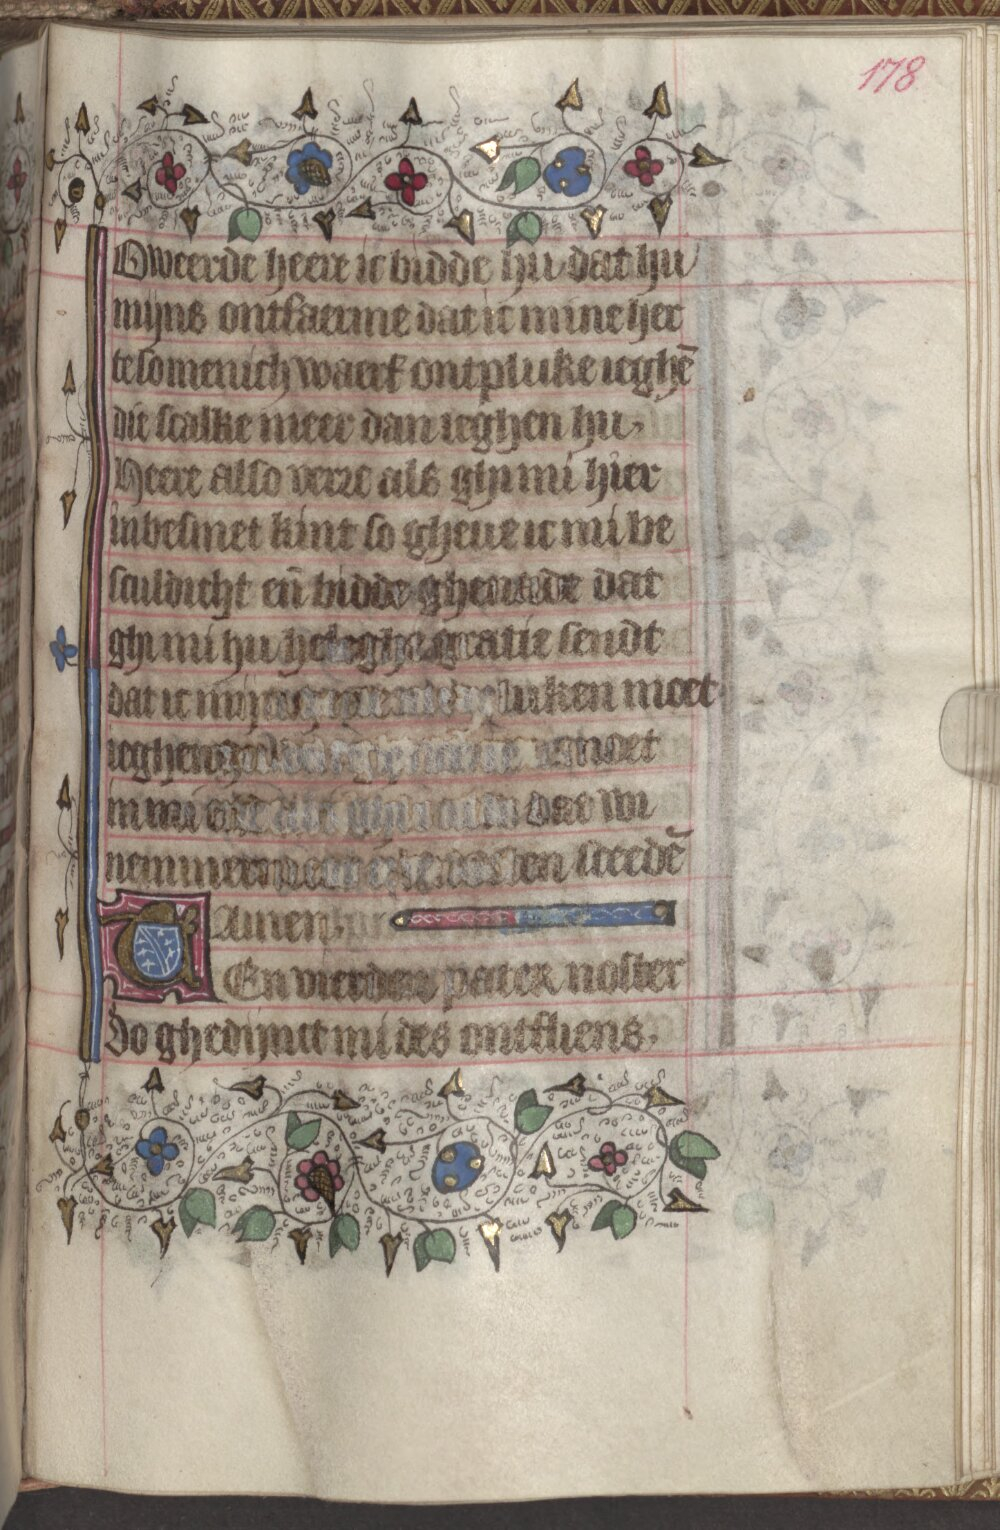 178
O weerde heere ic bidde hu dat hu
mijns ontfaerme dat ic mine her
te so menich waerf ontpluke ieghē
die scalke meer dan ieghen hu
Heere also verre als ghi mi hier
in besmet kint so gheue ic mi be
sculdicht eñ bidde ghenade dat
ghi mi hu heleghe gratie sendt
dat ic mijn luken moet
ieghen moet
in mi als ghi dat wi
nemmermeer sceedē
Amen
En vierden pater noster
So ghedijnct mi des ontfliens